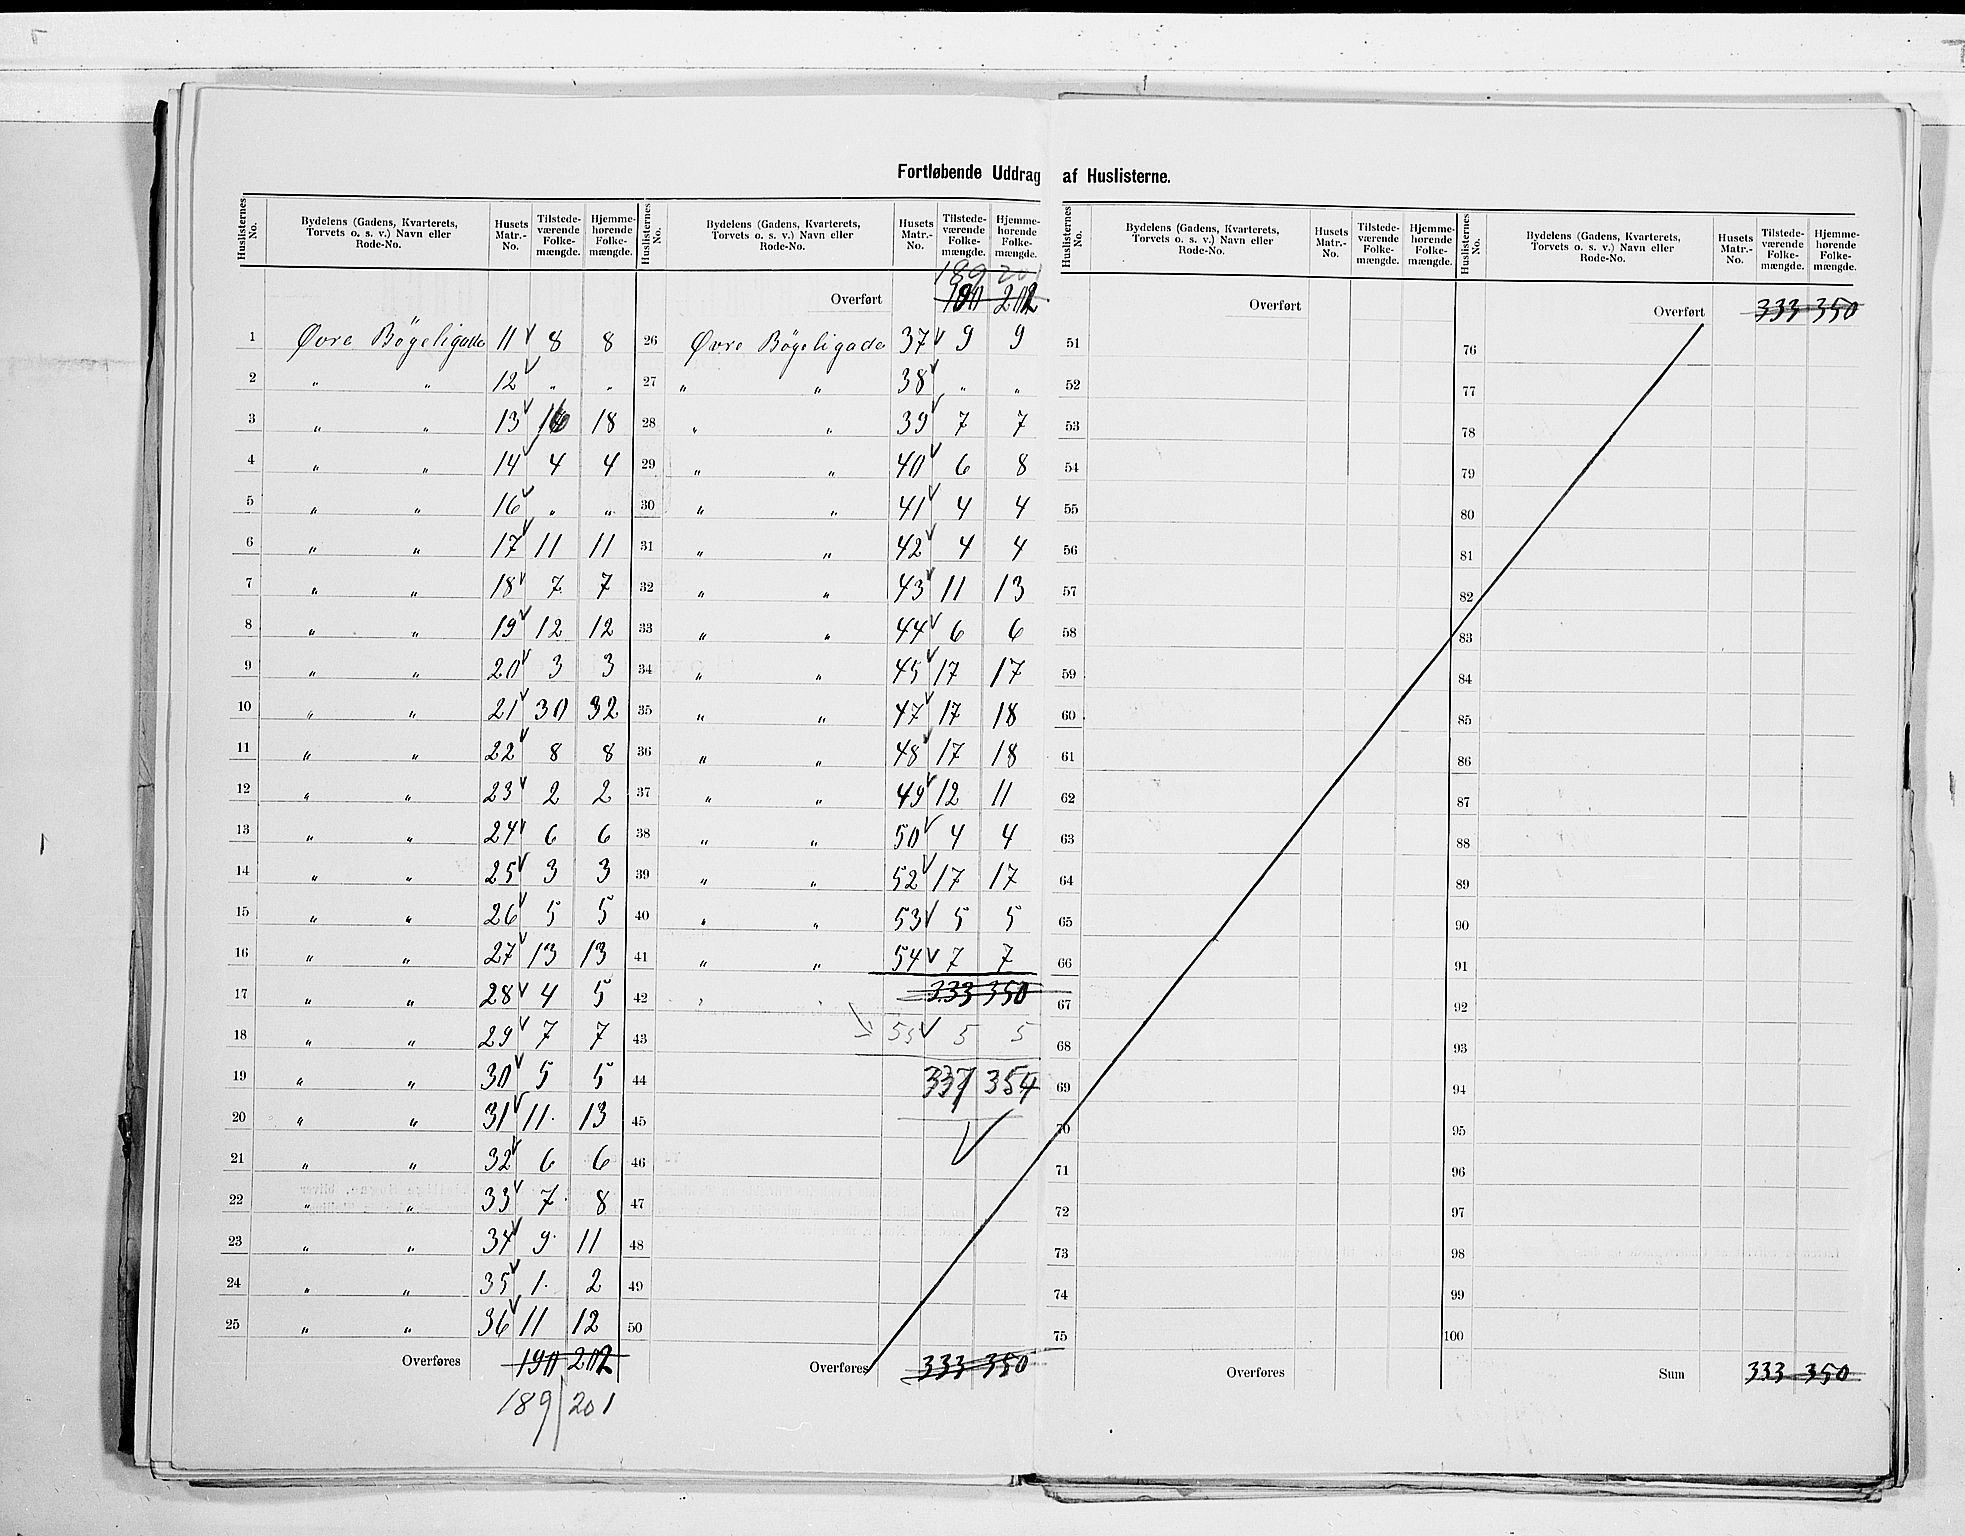 Fortløbende Uddrag af Huslisterne.
Huslisternes No. Bydelens (Gadens, Kvarterets, Torvets o. s. v.) Navn eller Rode-No. Husets Matr.-No. Tilstedeværende Folkemængde. Hjemmehørende Folkemængde.
1 Øvre Bøgeligade 11 √ 8 8
2 „ „ 12 √ „ „
3 „ „ 13 √ 16 18
4 „ „ 14 √ 4 4
5 „ „ 16 √ „ „
6 „ „ 17 √ 11 11
7 „ „ 18 √ 7 7
8 „ „ 19 √ 12 12
9 „ „ 20 √ 3 3
10 „ „ 21 √ 30 32
11 „ „ 22 √ 8 8
12 „ „ 23 √ 2 2
13 „ „ 24 √ 6 6
14 „ „ 25 √ 3 3
15 „ „ 26 √ 5 5
16 „ „ 27 √ 13 13
17 „ „ 28 √ 4 5
18 „ „ 29 √ 7 7
19 „ „ 30 √ 5 5
20 „ „ 31 √ 11 13
21 „ „ 32 √ 6 6
22 „ „ 33 √ 7 8
23 „ „ 34 √ 9 11
24 „ „ 35 √ 1 2
25 „ „ 36 √ 11 12
Overføres 190 202
189 201
Huslisternes No. Bydelens (Gadens, Kvarterets, Torvets o. s. v.) Navn eller Rode-No. Husets Matr.-No. Tilstedeværende Folkemængde. Hjemmehørende Folkemængde.
189 201
Overført 190 202
26 Øvre Bøgeligade 37 √ 9 9
27 „ „ 38 √ „ „
28 „ „ 39 √ 7 7
29 „ „ 40 √ 6 8
30 „ „ 41 √ 4 4
31 „ „ 42 √ 4 4
32 „ „ 43 √ 11 13
33 „ „ 44 √ 6 6
34 „ „ 45 √ 17 17
35 „ „ 47 √ 17 18
36 „ „ 48 √ 17 18
37 „ „ 49 √ 12 11
38 „ „ 50 √ 4 4
39 „ „ 52 √ 17 17
40 „ „ 53 √ 5 5
41 „ „ 54 √ 7 7
42 333 350
43 55 √ 5 5
44 337 354
45
46
47
48
49
50
Overføres 333 350
Huslisternes No. Bydelens (Gadens, Kvarterets, Torvets o. s. v.) Navn eller Rode-No. Husets Matr.-No. Tilstedeværende Folkemængde. Hjemmehørende Folkemængde.
Overført
51
52
53
54
55
56
57
58
59
60
61
62
63
64
65
66
67
68
69
70
71
72
73
74
75
Overføres
Huslisternes No. Bydelens (Gadens, Kvarterets, Torvets o. s. v.) Navn eller Rode-No. Husets Matr.-No. Tilstedeværende Folkemængde. Hjemmehørende Folkemængde.
Overført 333 350
76
77
78
79
80
81
82
83
84
85
86
87
88
89
90
91
92
93
94
95
96
97
98
99
100
Sum 333 350